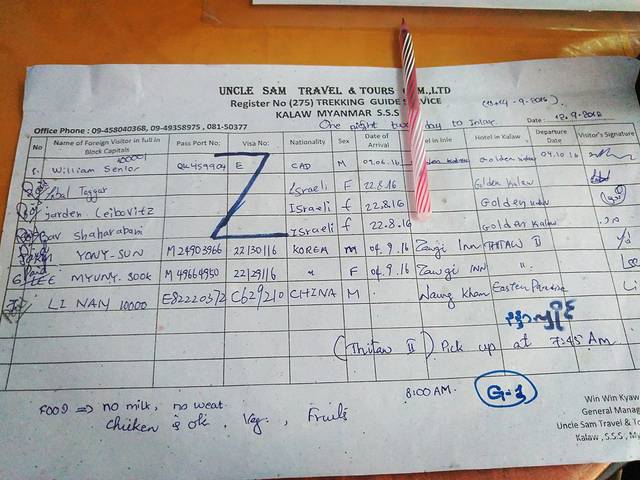 UNCLE SAM TRAVEL & TOURS COM.,LTD
Register No (275) TREKKING GUIDE SERVICE
KALAW MYANMAR S.S.S
(13+14-9-2016)
Office Phone : 09-458040368, 09-49358975 , 081-50377
One night two day to Inlay
Date : 12.9.2016
No Name of Foreign Visitor in full in Block Capitals Pass Port No: Visa No: Nationality Sex Date of Arrival Hotel in Inle Hotel in Kalaw Departure Date Visitor's Signature
10000
William Senior QK459904 E CAD M 09.06.16 Golden Kalaw 09.10.16
Taggar Israeli F 22.8.16 Golden Kalaw
Yarden Leibovitz Israeli f 22.8.16 Golden Kalaw
Bar Shaharabani Israeli f 22.8.16 Golden Kalaw
YONY-SUN M24903966 22/30116 KOREA M 04.9.16 Zawgi Inn THITAW II
6 LEE MYUNY.SOOK M49664950 22/29116 " F 04.9.16 Zawgi INN " Lee
LI NAN 10000 E82220372 C629210 CHINA M Naung Khan Eastern Paradise Li
(Thitaw II) Pick up at 7:45 Am
8:00 AM. G-1
FOOD => no milk, no weat
chicken is ok, Veg, Fruits
Win Win Kyaw
General Manag
Uncle Sam Travel & To
Kalaw , S.S.S , My